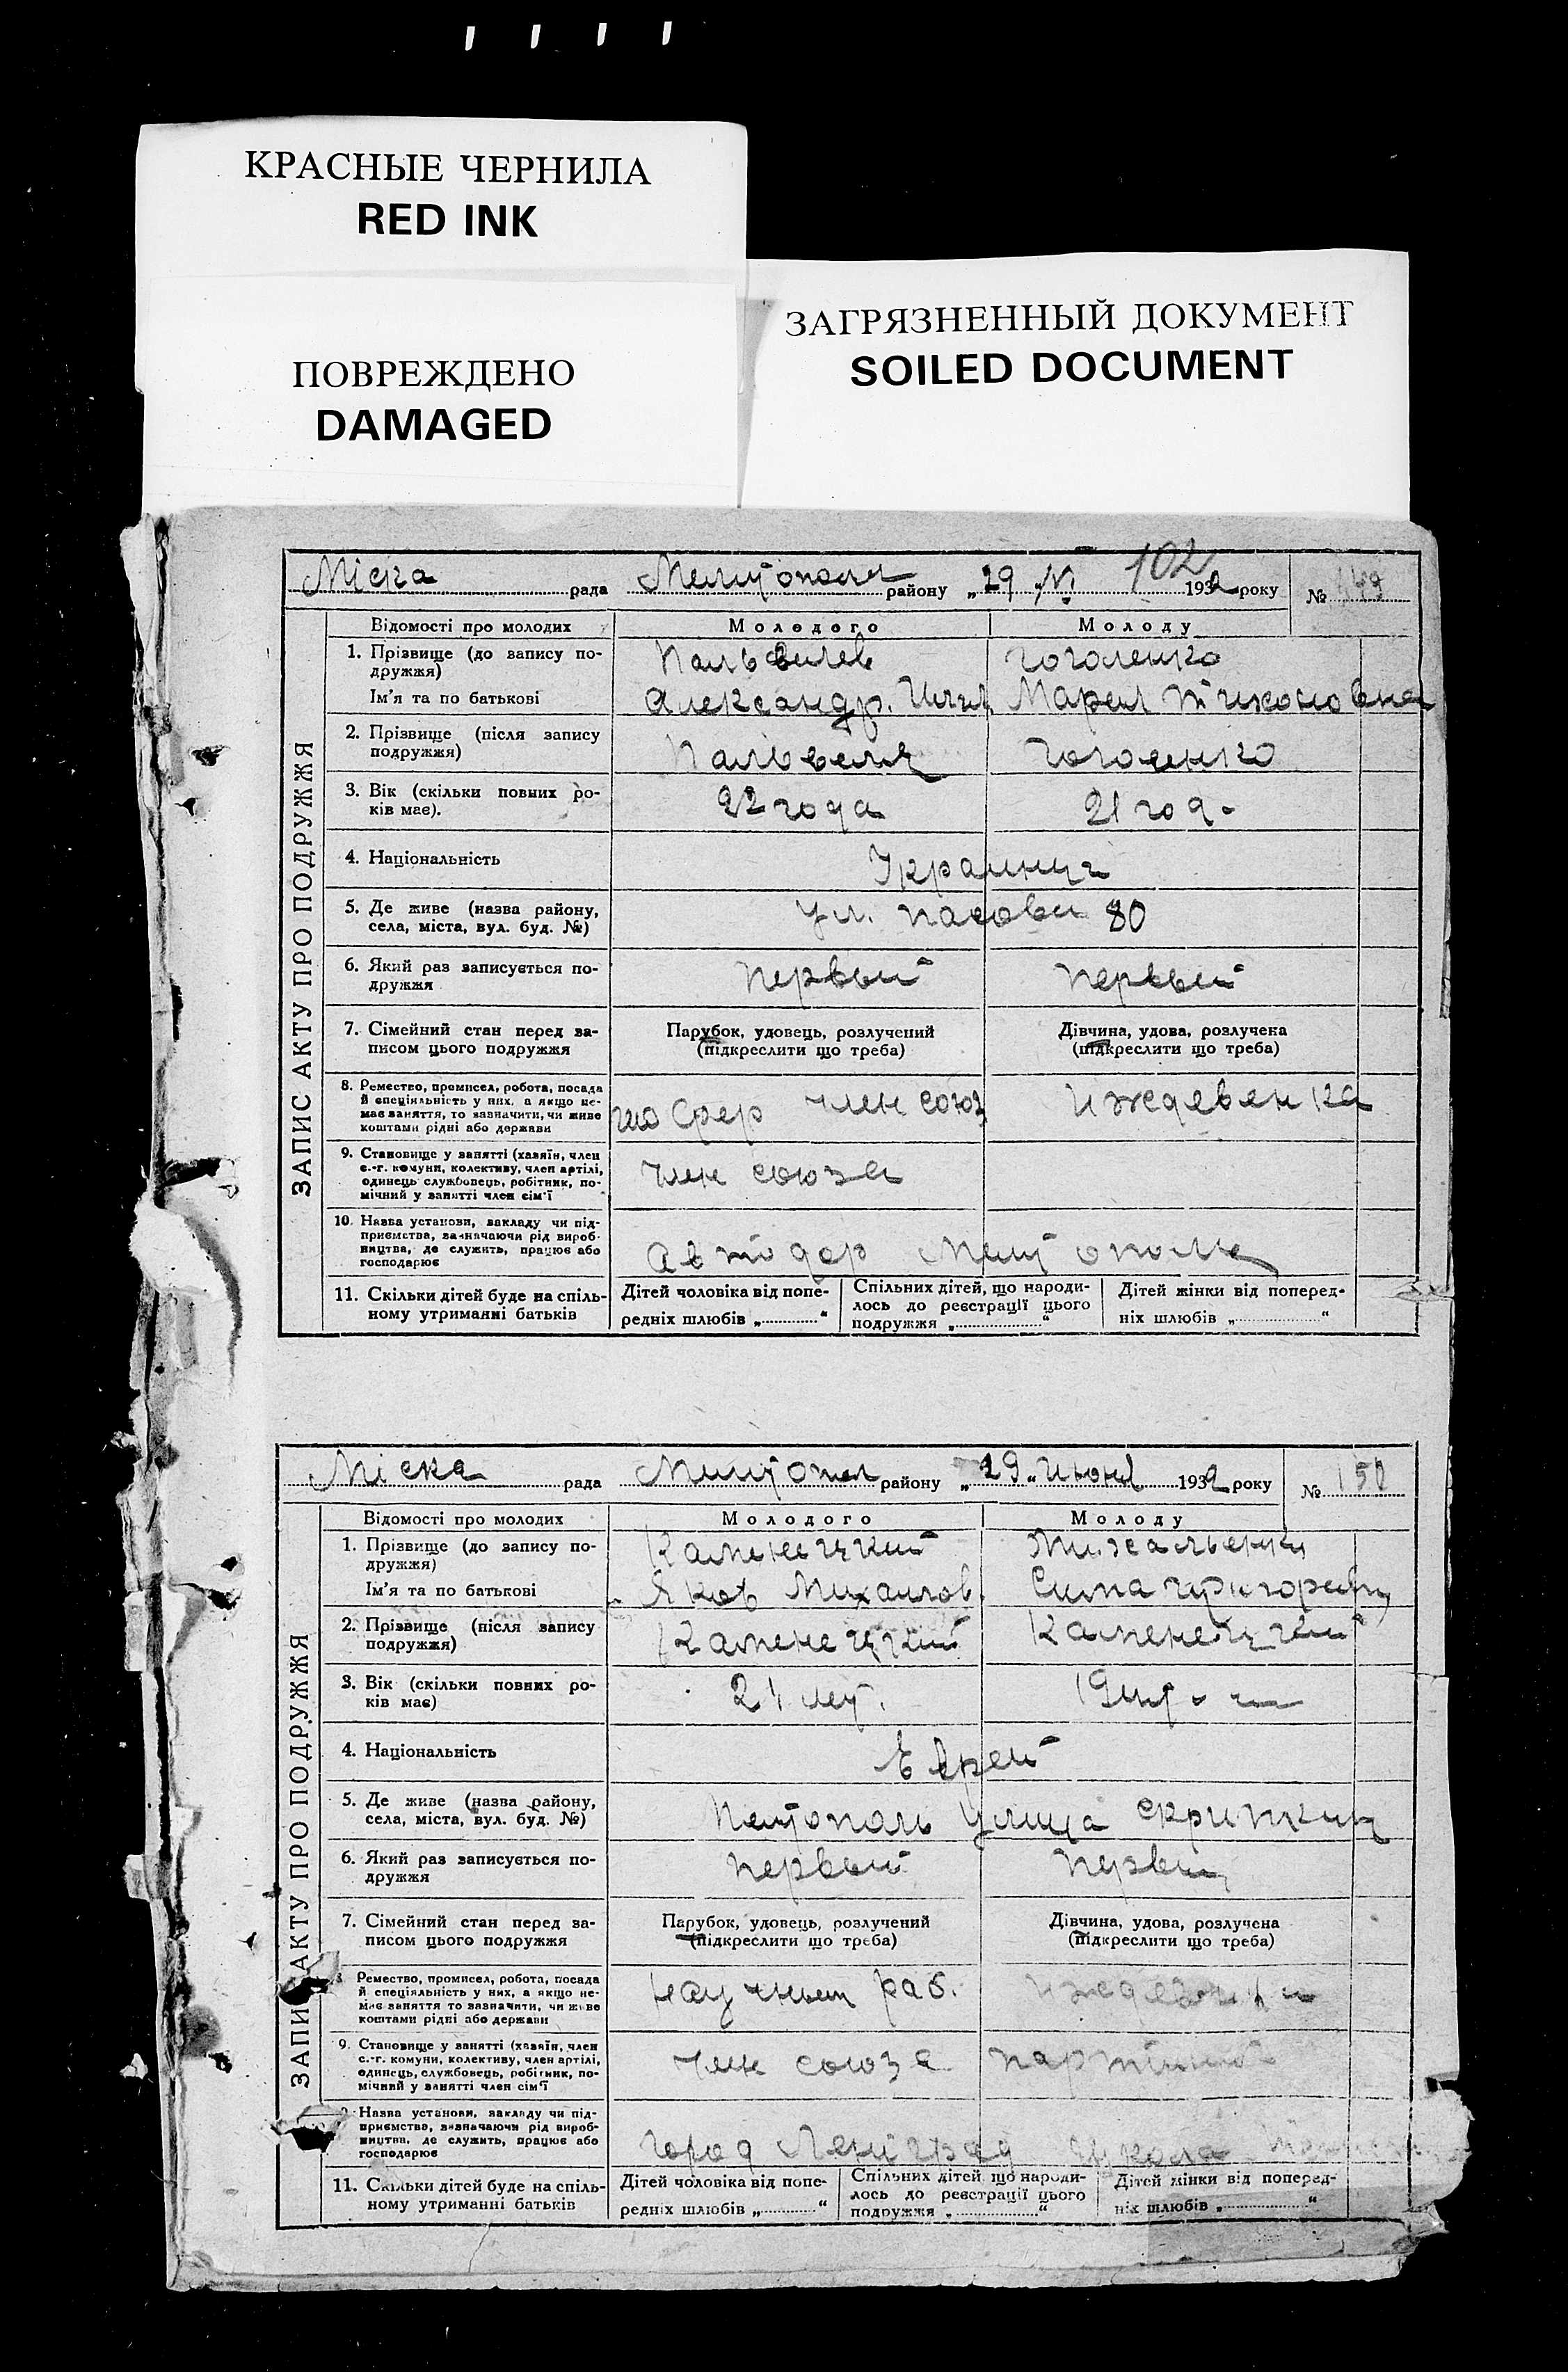 КРАСНЫЕ ЧЕРНИЛА
RED INK
ПОВРЕЖДЕНО
DAMAGED
ЗАГРЯЗНЕННЫЙ ДОКУМЕНТ
SOILED DOCUMENT
102
Міска рада району „29 VI 1932 року № 149
ЗАПИС АКТУ ПРО ПОДРУЖЖЯ
Відомості про молодих Молодого Молоду
1. Прізвище (до запису по-
дружжя) Гоголенко
Ім'я та по батькові Александр. Мария Тихоновна
2. Прізвище (після запису
подружжя) Гоголенко
3. Вік (скільки повних ро-
ків має). 22 года 21 год
4. Національність
5. Де живе (назва району,
села, міста, вул. буд. №) ул. 80
6. Який раз записується по-
дружжя первый первый
7. Сімейний стан перед за-
писом цього подружжя
Парубок, удовець, розлучений
(підкреслити що треба)
Дівчина, удова, розлучена
(підкреслити що треба)
8. Ремество, промисел, робота, посада
й спеціяльність у них, а якщо не-
має заняття, то зазначити, чи живе
коштами рідні або держави
член союз
9. Становище у занятті (хазяїн, член
с.-г. комуни, колективу, член артілі,
одинець службовець, робітник, по-
мічний у занятті член сім'ї
член союза
10. Назва установи, закладу чи під-
приємства, зазначаючи рід вироб-
ництва, де служить, працює або
господарює
Автодор
11. Скільки дітей буде на спіль-
ному утриманні батьків
Дітей чоловіка від попе-
редніх шлюбів „ “
Спільних дітей, що народи-
лось до реєстрації цього
подружжя „ “
Дітей жінки від поперед-
ніх шлюбів „ “
Міска рада району „29 „Июня 1932 року № 150
ЗАПИС АКТУ ПРО ПОДРУЖЖЯ
Відомості про молодих Молодого Молоду
1. Прізвище (до запису по-
дружжя) Каменецкий
Ім'я та по батькові Яков Михайлов. Сима
2. Прізвище (після запису
подружжя) Каменецкий Каменецкий
3. Вік (скільки повних ро-
ків має) 21 лет. 19
4. Національність Еврей
5. Де живе (назва району,
села, міста, вул. буд. №) улица
6. Який раз записується по-
дружжя первый первый
7. Сімейний стан перед за-
писом цього подружжя
Парубок, удовець, розлучений
(підкреслити що треба)
Дівчина, удова, розлучена
(підкреслити що треба)
Ремество, промисел, робота, посада
й спеціяльність у них, а якщо не-
має заняття то зазначити, чи живе
коштами рідні або держави
научный раб.
9. Становище у занятті (хазяїн, член
с.-г. комуни, колективу, член артілі,
одинець, службовець, робітник, по-
мічний у занятті член сім'ї
член союза
Назва установи, закладу чи під-
приємства, зазначаючи рід вироб-
ництва, де служить, працює або
господарює
город Ленінград
11. Скільки дітей буде на спіль-
ному утриманні батьків
Дітей чоловіка від попе-
редніх шлюбів „ “
Спільних дітей, що народи-
лось до реєстрації цього
подружжя „ “
Дітей жінки від поперед-
ніх шлюбів „ “